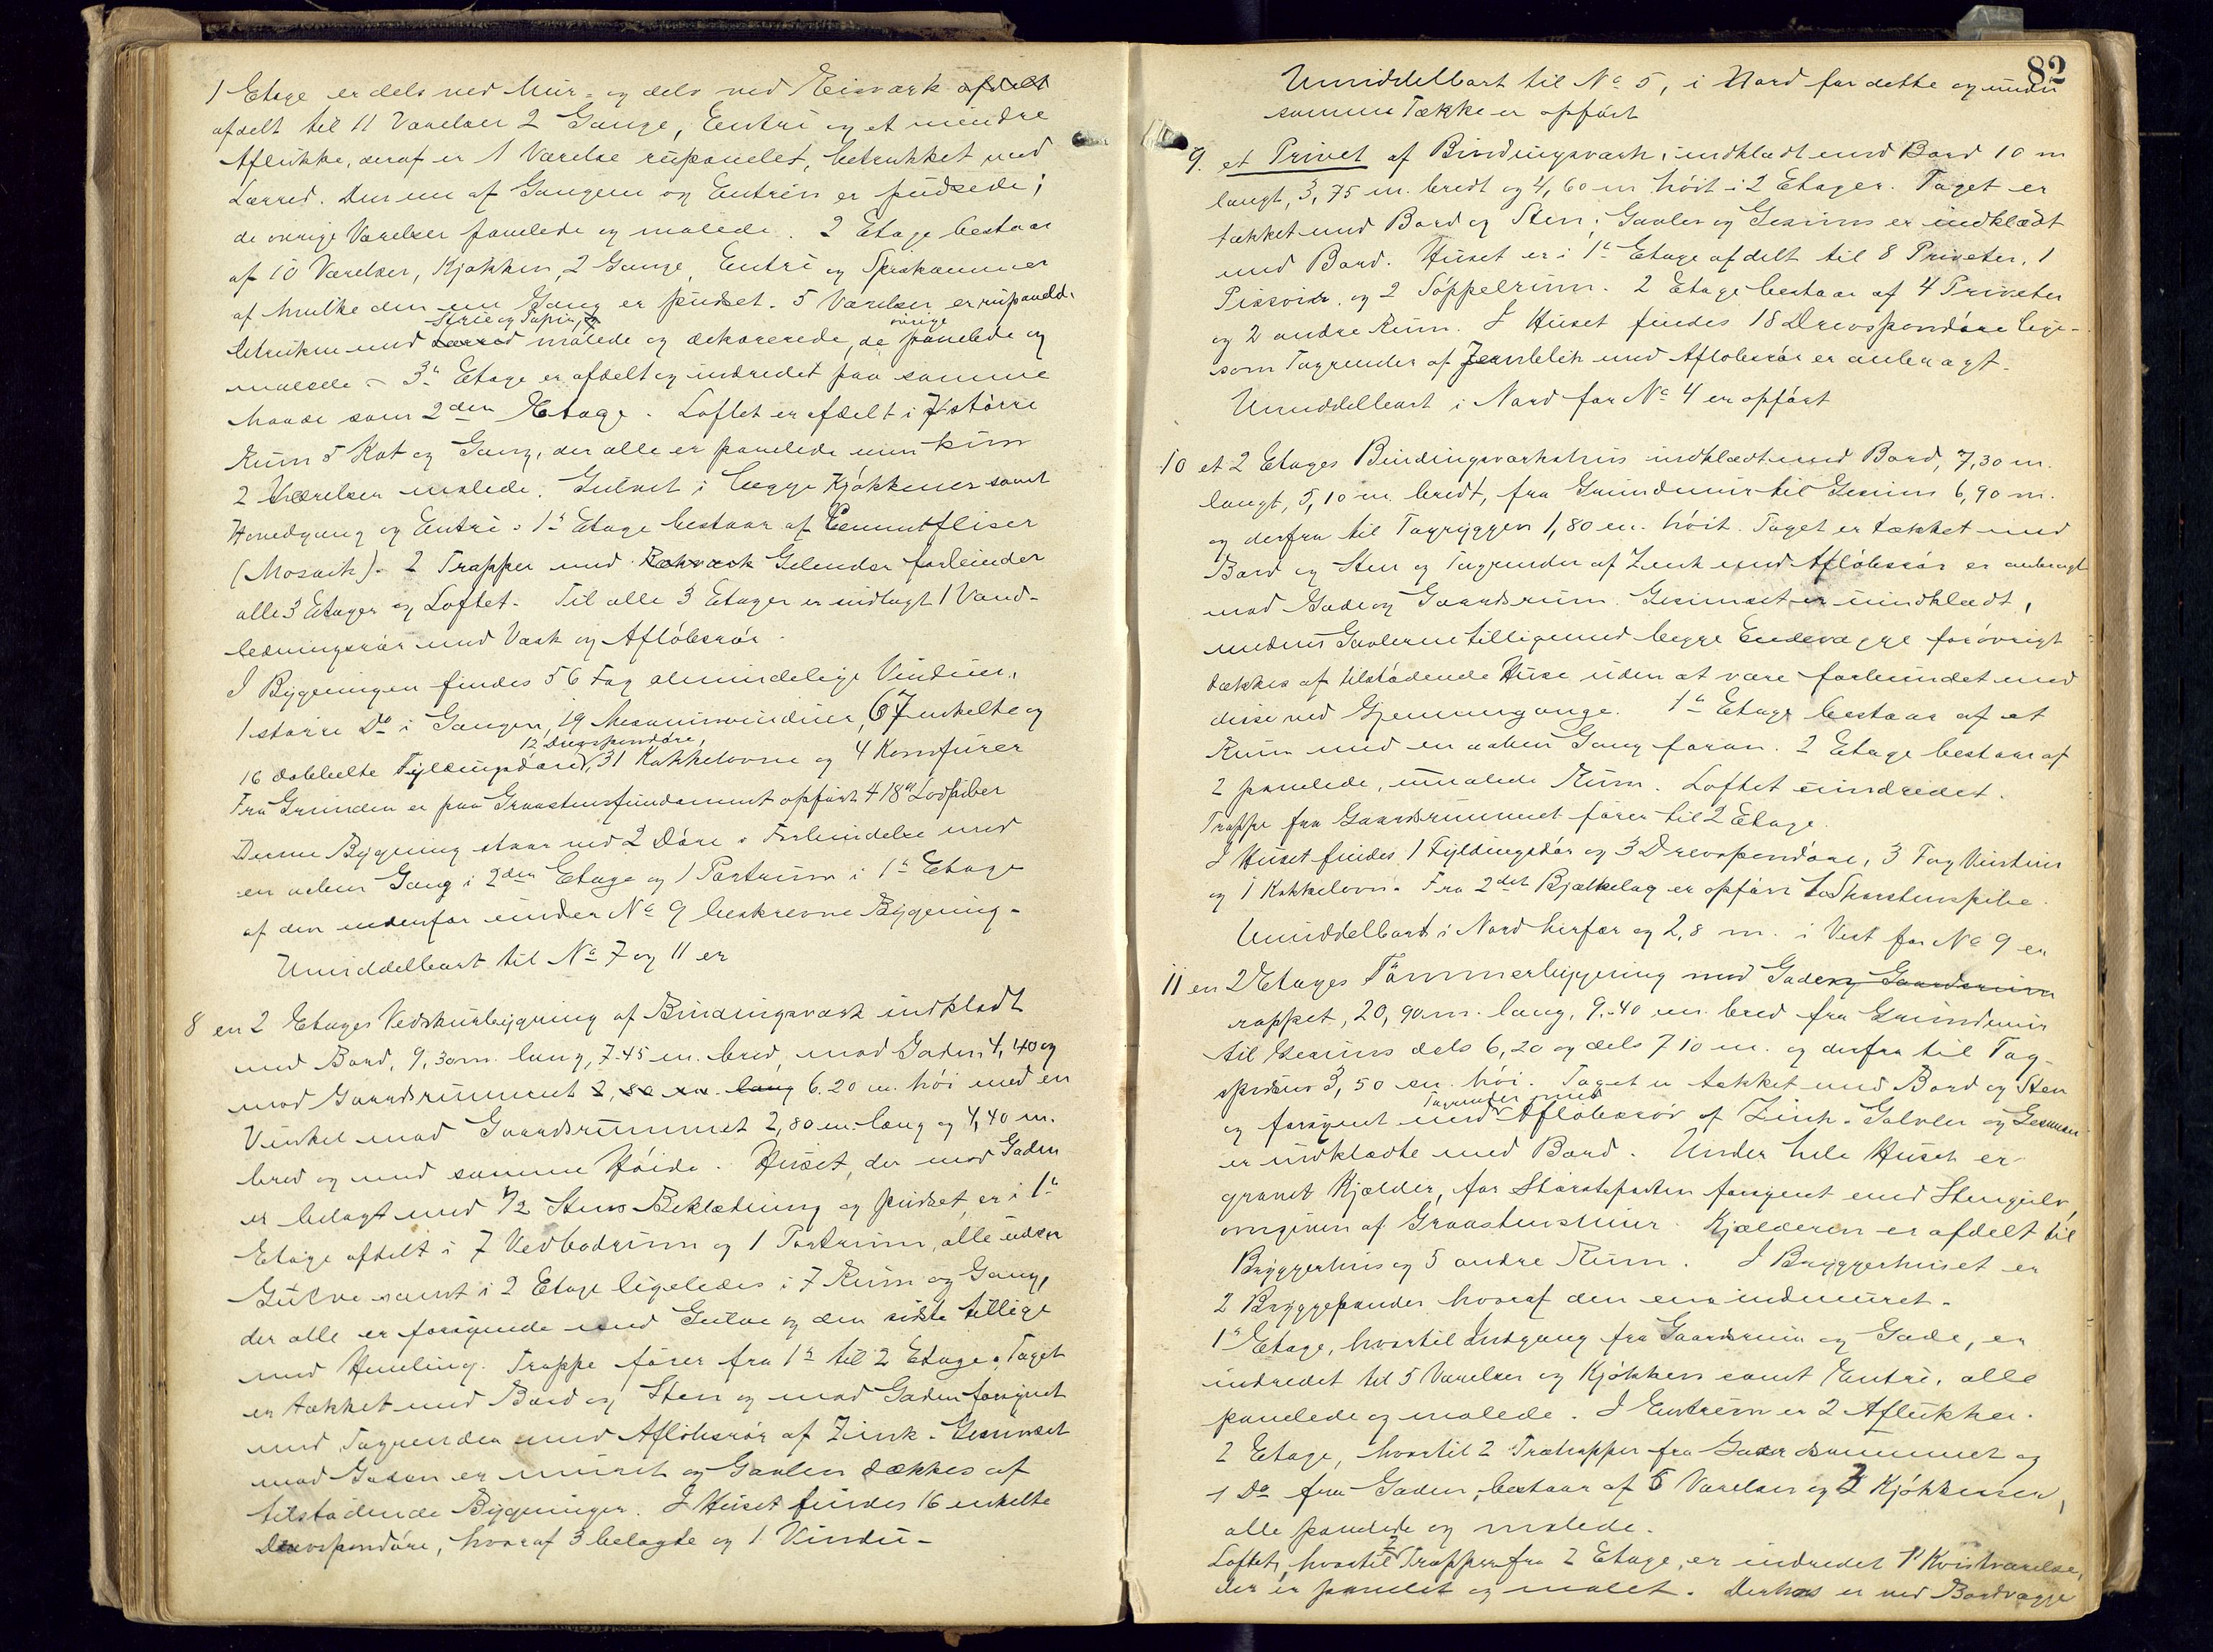 1 Etage er dels ved Mur- og dels ved Reisværk afdelt
afdelt til 11 Værelser 2 Gange, Entré og et mindre
Aflukke, deraf er 1 Værelse rupanelet, betrukket med
Lærred. Den ene af Gangene og Entréen er pudsede;
de øvrige Værelser panelede og malede. 2 Etage bestaar
af 10 Værelser, Kjøkken, 2 Gange, Entré og Spisekammer
af hvilke den ene Gang er pudset. 5 Værelser er rupanelede
Strie og Tapin, og
betrukne med Lærred malede og dekorerede, de øvrige panelede og
malede - 3die Etage er afdelt og indredet paa samme
Maade som 2den Etage. Loftet er afdelt i 7 større
Rum 5 Kot og Gang, der alle er panelede men kun
2 Værelser malede. Gulvet i begge Kjøkkener samt
Hovedgang og Entré i 1ste Etage bestaar af Cementfliser
(Mosaik). 2 Trapper med Rækværk Gelender forbinder
alle 3 Etager og Loftet. Til alle 3 Etager er indlagt 1 Vand-
ledningsrør med Vask og Afløbsrør.
I Bygningen findes 56 Fag almindelige Vinduer,
1 større Do i Gangen, 19 Mesaninvinduer, 67 enkelte og
12 Drevspendøre,
16 dobbelte Fyldingsdøre, 31 Kakkelovne og 4 Komfurer
Fra Grunden er paa Graastensfundament opført 4 18" Lodpiber
Denne Bygning staar ved 2 Døre i Forbindelse med
en aaben Gang i 2den Etage og 1 Portrum i 1ste Etage
af den nedenfor under No 9 beskrevne Bygning.
Umiddelbart til No 7 og 11 er
8 en 2 Etages Vedskurbygning af Bindingsværk indklædt
med Bord, 9,30 m. lang, 7.45 m. bred, mod Gaden 4,40 og
mod Gaardsrummet 2,80 m. lang 6.20 m. høi med en
Vinkel mod Gaardsrummet 2,80 m. lang og 4,40 m.
bred og med samme Høide. Huset, der mod Gaden
er belagt med 1/2 Stens Beklædning og pudset, er i 1ste
Etage afdelt i 7 Vedbodrum og 1 Portrum, alle uden
Gulve samt i 2 Etage ligeledes i 7 Rum og Gang,
der alle er forsynede med Gulve og den sidste tillige
med Himling. Trappe fører fra 1ste til 2 Etage. Taget
er tækket med Bord og Sten og mod Gaden forsynet
med Tagrender med Afløbsrør af Zink. Gesimset
mod Gaden er muret og Gavlen dækkes af
tilstødende Bygninger. I Huset findes 16 enkelte
Drevspendøre, hvoraf 3 belagte og 1 Vindu -
82
Umiddelbart til No 5, i Nord for dette og under
samme Tække er opført
9. et Privet af Bindingsværk, indklædt med Bord 10 m
langt, 3,75 m. bredt og 4,60 m høit i 2 Etager. Taget er
tækket med Bord og Sten; Gavler og Gesims er indklædt
med Bord. Huset er i 1ste Etage afdelt til 8 Priveter, 1
Pissoir og 2 Søppelrum. 2 Etage bestaar af 4 Priveter
og 2 andre Rum. I Huset findes 18 Drevspendøre lige-
som Tagrender af Jernblik med Afløbsrør er anbragt.
Umiddelbart i Nord for No 4 er opført
10 et 2 Etages Bindingsværkshus indklædt med Bord, 7,30 m.
langt, 5,10 m. bredt, fra Grundmur til Gesims 6,90 m.
og derfra til Tagryggen 1,80 m. høit. Taget er tækket med
Bord og Sten og Tagrender af Zink med Afløbsrør er anbragt
mod Gade og Gaardsrum. Gesimset er uindklædt,
medens Gavlerne tilligemed begge Endevægge forøvrigt
dækkes af tilstødende Huse uden at være forbundet med
disse ved Gjennemgange. 1ste Etage bestaar af et
Rum med en aaben Gang foran. 2 Etage bestaar af
2 panelede, umalede Rum. Loftet uindredet.
Trappe fra Gaardsrummet fører til 2 Etage.
I Huset findes 1 Fyldingsdør og 3 Drevspendøre, 3 Fag Vinduer
og 1 Kakkelovn. Fra 2det Bjælkelag er opført 1 Skorstenspibe.
Umiddelbart i Nord herfor og 2,8 m. i Vest for No 9 er
11 en 2 Etages Tømmerbygning mod Gade og Gaardsrum
rappet, 20,90 m. lang, 9.40 m. bred fra Grundmur
til Gesims dels 6,20 og dels 7 10 m. og derfra til Tag-
spidsen 3,50 m. høi. Taget er tækket med Bord og Sten
Tagrender med
og forsynet med Afløbsrør af Zink. Gavler og Gesimser
er indklædte med Bord. Under hele Huset er
gravet Kjælder, for Størsteparten forsynet med Stengulv,
omgiven af Graastensmur. Kjælderen er afdelt til
Bryggerhus og 5 andre Rum. I Bryggerhuset er
2 Bryggepander hvoraf den ene indmuret.
1ste Etage, hvortil Indgang fra Gaardsrum og Gade, er
indredet til 5 Værelser og Kjøkken samt Entré, alle
panelede og malede. I Entréen er 2 Aflukker.
2 Etage, hvortil 2 Trætrapper fra Gaardsrummet og
1 Do fra Gaden, bestaar af 5 Værelser og 2 Kjøkkener,
alle panelede og malede.
Loftet, hvortil 2 Trapper fra 2 Etage, er indredet 1 Kvistværelse,
der er panelet og malet. Derhos er ved Bordvægge